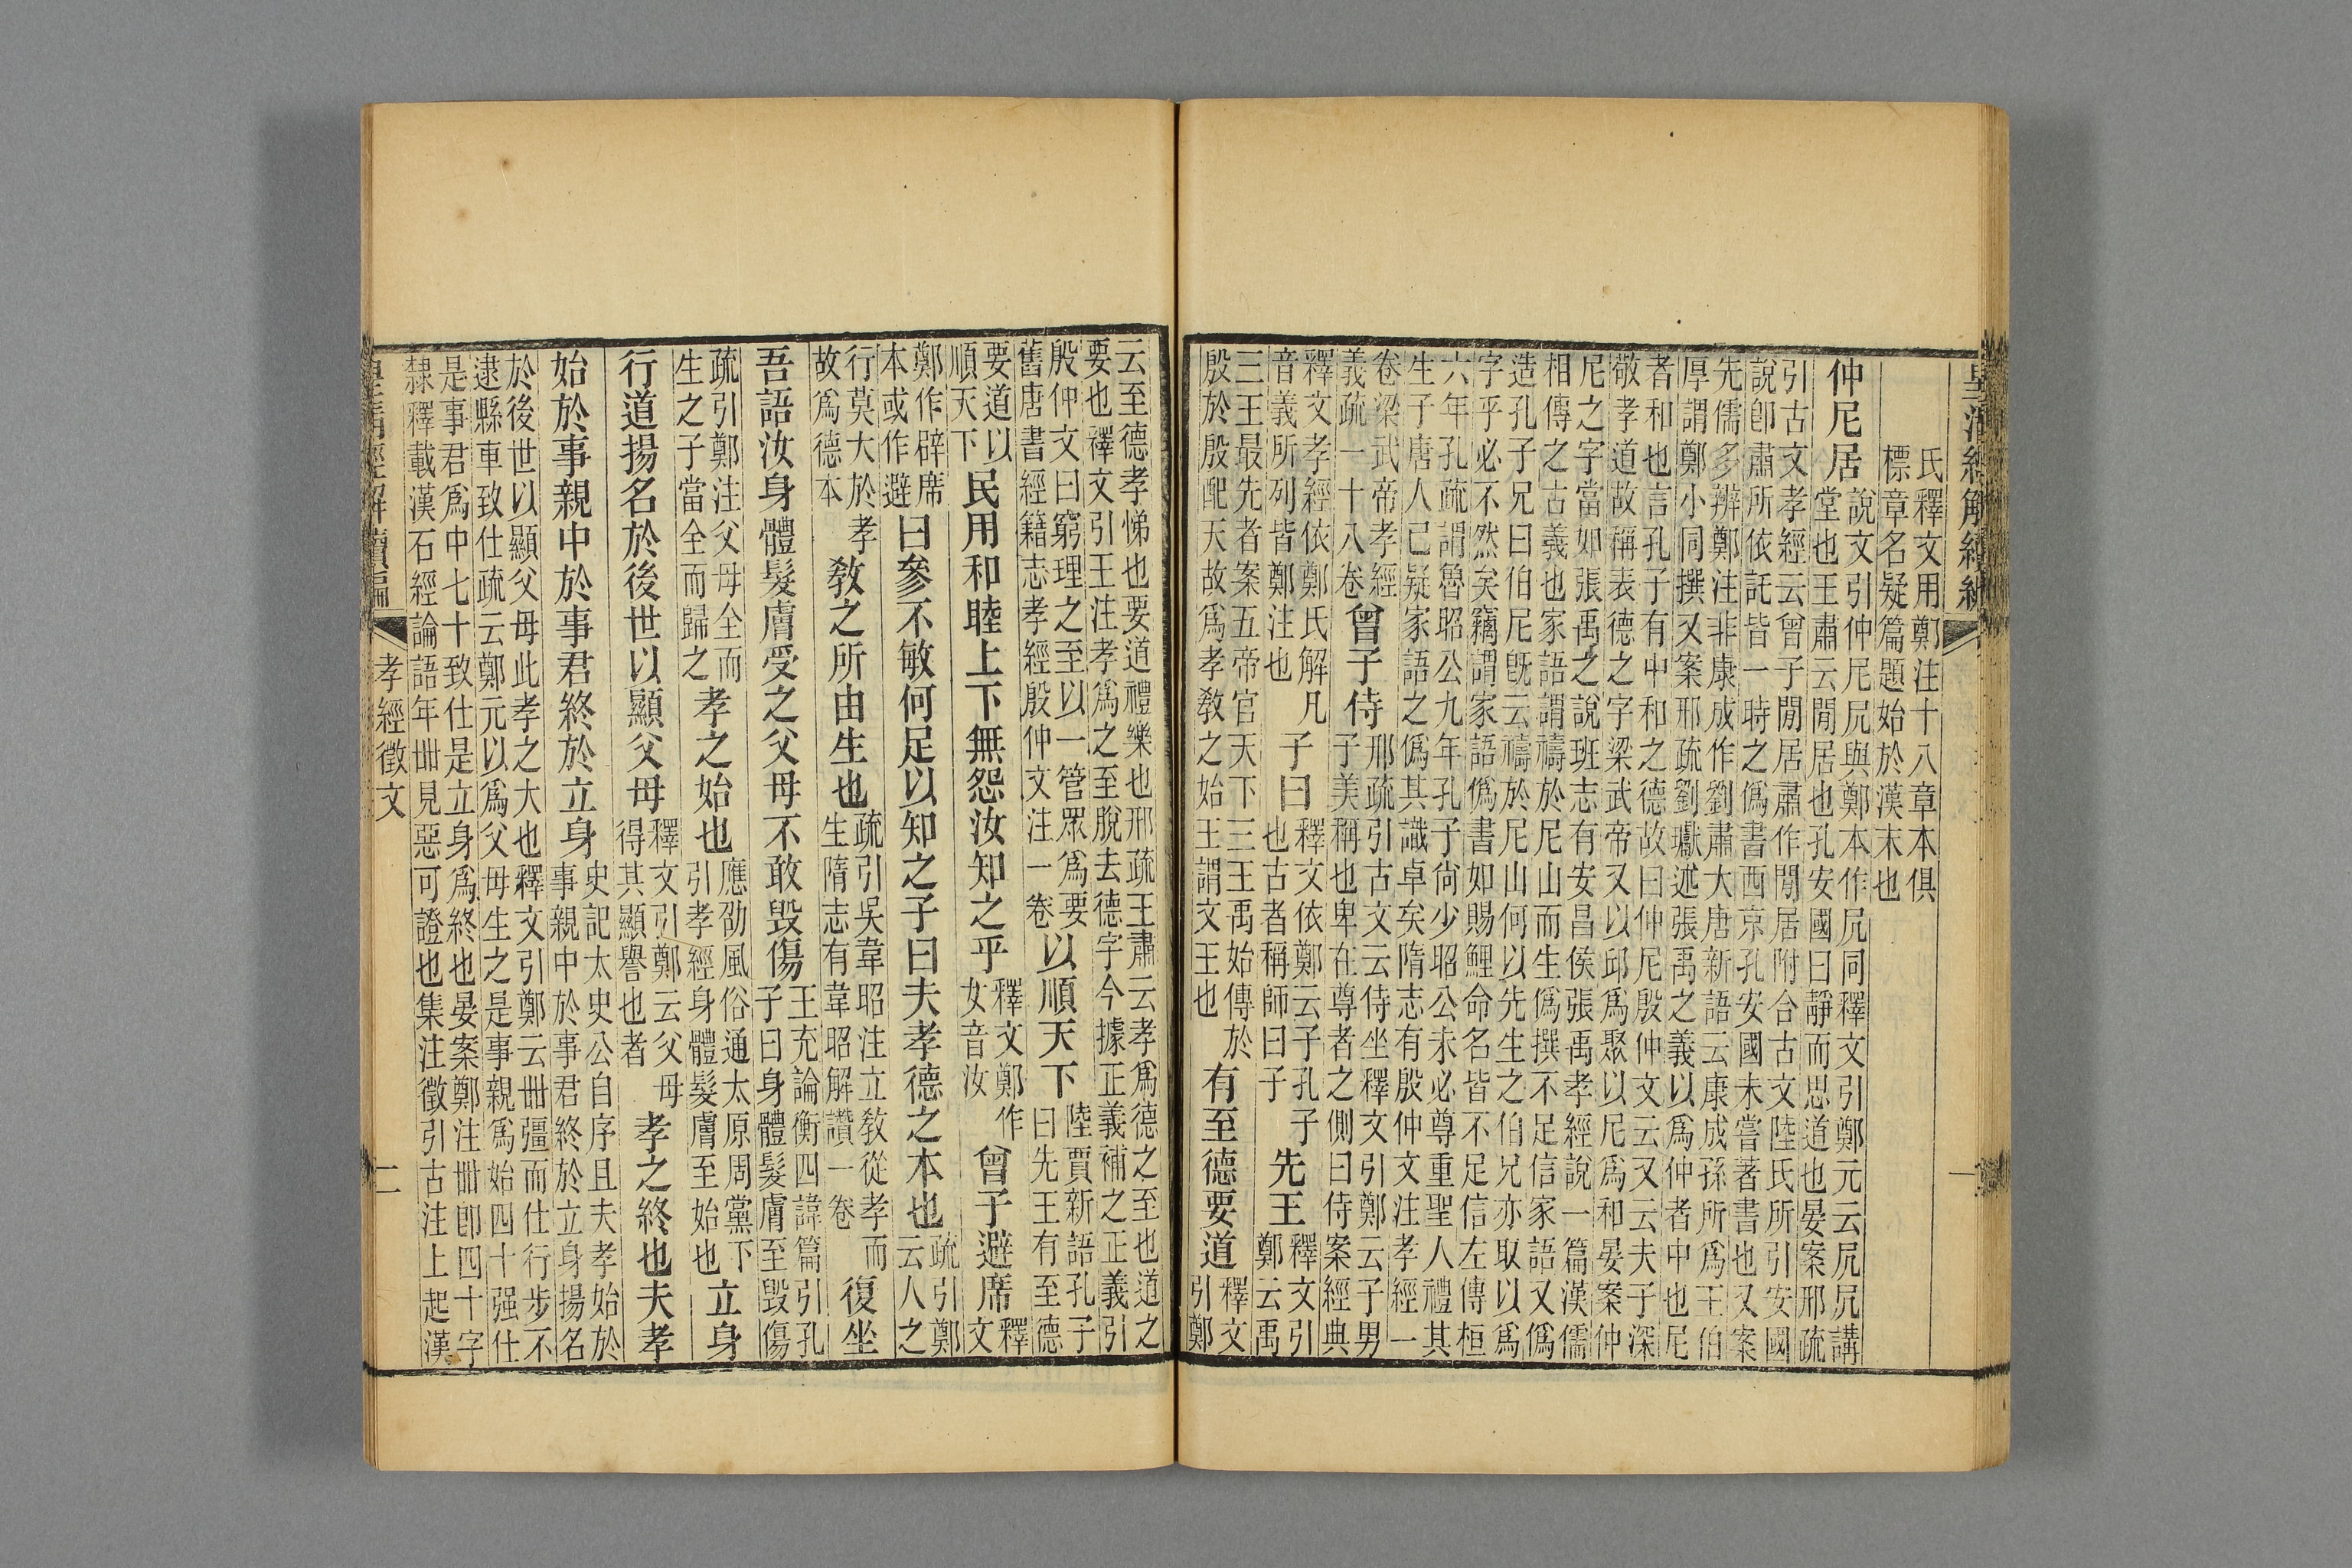 皇清經解續編
一
氏釋文用鄭注十八章本俱
標章名疑篇題始於漢末也
仲尼居
說文引仲尼凥與鄭本作凥同釋文引鄭元云凥凥講
堂也王肅云閒居也孔安國曰靜而思道也晏案邢疏
引古文孝經云曾子閒居肅作閒居附合古文陸氏所引安國
說卽肅所依託皆一時之僞書西京孔安國未嘗著書也又案
先儒多辨鄭注非康成作劉肅大唐新語云康成孫所爲王伯
厚謂鄭小同撰又案邢疏劉瓛述張禹之義以爲仲者中也尼
者和也言孔子有中和之德故曰仲尼殷仲文云又云夫子深
敬孝道故稱表德之字梁武帝又以邱爲聚以尼爲和晏案仲
尼之字當如張禹之說班志有安昌侯張禹孝經說一篇漢儒
相傳之古義也家語謂禱於尼山而生僞撰不足信家語又僞
造孔子兄曰伯尼旣云禱於尼山何以先生之伯兄亦取以爲
字乎必不然矣竊謂家語僞書如賜鯉命名皆不足信左傳桓
六年孔疏謂魯昭公九年孔子尙少昭公未必尊重聖人禮其
生子唐人已疑家語之僞其識卓矣隋志有殷仲文注孝經一
卷梁武帝孝經
義疏一十八卷
曾子侍
邢疏引古文云侍坐釋文引鄭云子男
子美稱也卑在尊者之側曰侍案經典
釋文孝經依鄭氏解凡
音義所列皆鄭注也
子曰
釋文依鄭云子孔子
也古者稱師曰子
先王
釋文引
鄭云禹
三王最先者案五帝官天下三王禹始傳於
殷於殷配天故爲孝敎之始王謂文王也
有至德要道
釋文
引鄭
云至德孝悌也要道禮樂也邢疏王肅云孝爲德之至也道之
要也釋文引王注孝爲之至脫去德字今據正義補之正義引
殷仲文曰窮理之至以一管眾爲要
舊唐書經籍志孝經殷仲文注一卷
以順天下
陸賈新語孔子
曰先王有至德
要道以
順天下
民用和睦上下無怨汝知之乎
釋文鄭作
女音汝
曾子避席
釋
文
鄭作辟席
本或作避
曰參不敏何足以知之子曰夫孝德之本也
疏引鄭
云人之
行莫大於孝
故爲德本
敎之所由生也
疏引吳韋昭注立敎從孝而
生隋志有韋昭解讚一卷
復坐
吾語汝身體髮膚受之父母不敢毀傷
王充論衡四諱篇引孔
子曰身體髮膚至毀傷
疏引鄭注父母全而
生之子當全而歸之
孝之始也
應劭風俗通太原周黨下
引孝經身體髮膚至始也
立身
行道揚名於後世以顯父母
釋文引鄭云父母
得其顯譽也者
孝之終也夫孝
始於事親中於事君終於立身
史記太史公自序且夫孝始於
事親中於事君終於立身揚名
於後世以顯父母此孝之大也釋文引鄭云卌彊而仕行步不
逮縣車致仕疏云鄭元以爲父母生之是事親爲始四十强仕
是事君爲中七十致仕是立身爲終也晏案鄭注卌卽四十字
隸釋載漢石經論語年卌見惡可證也集注徵引古注上起漢
皇清經解續編
孝經徵文
二